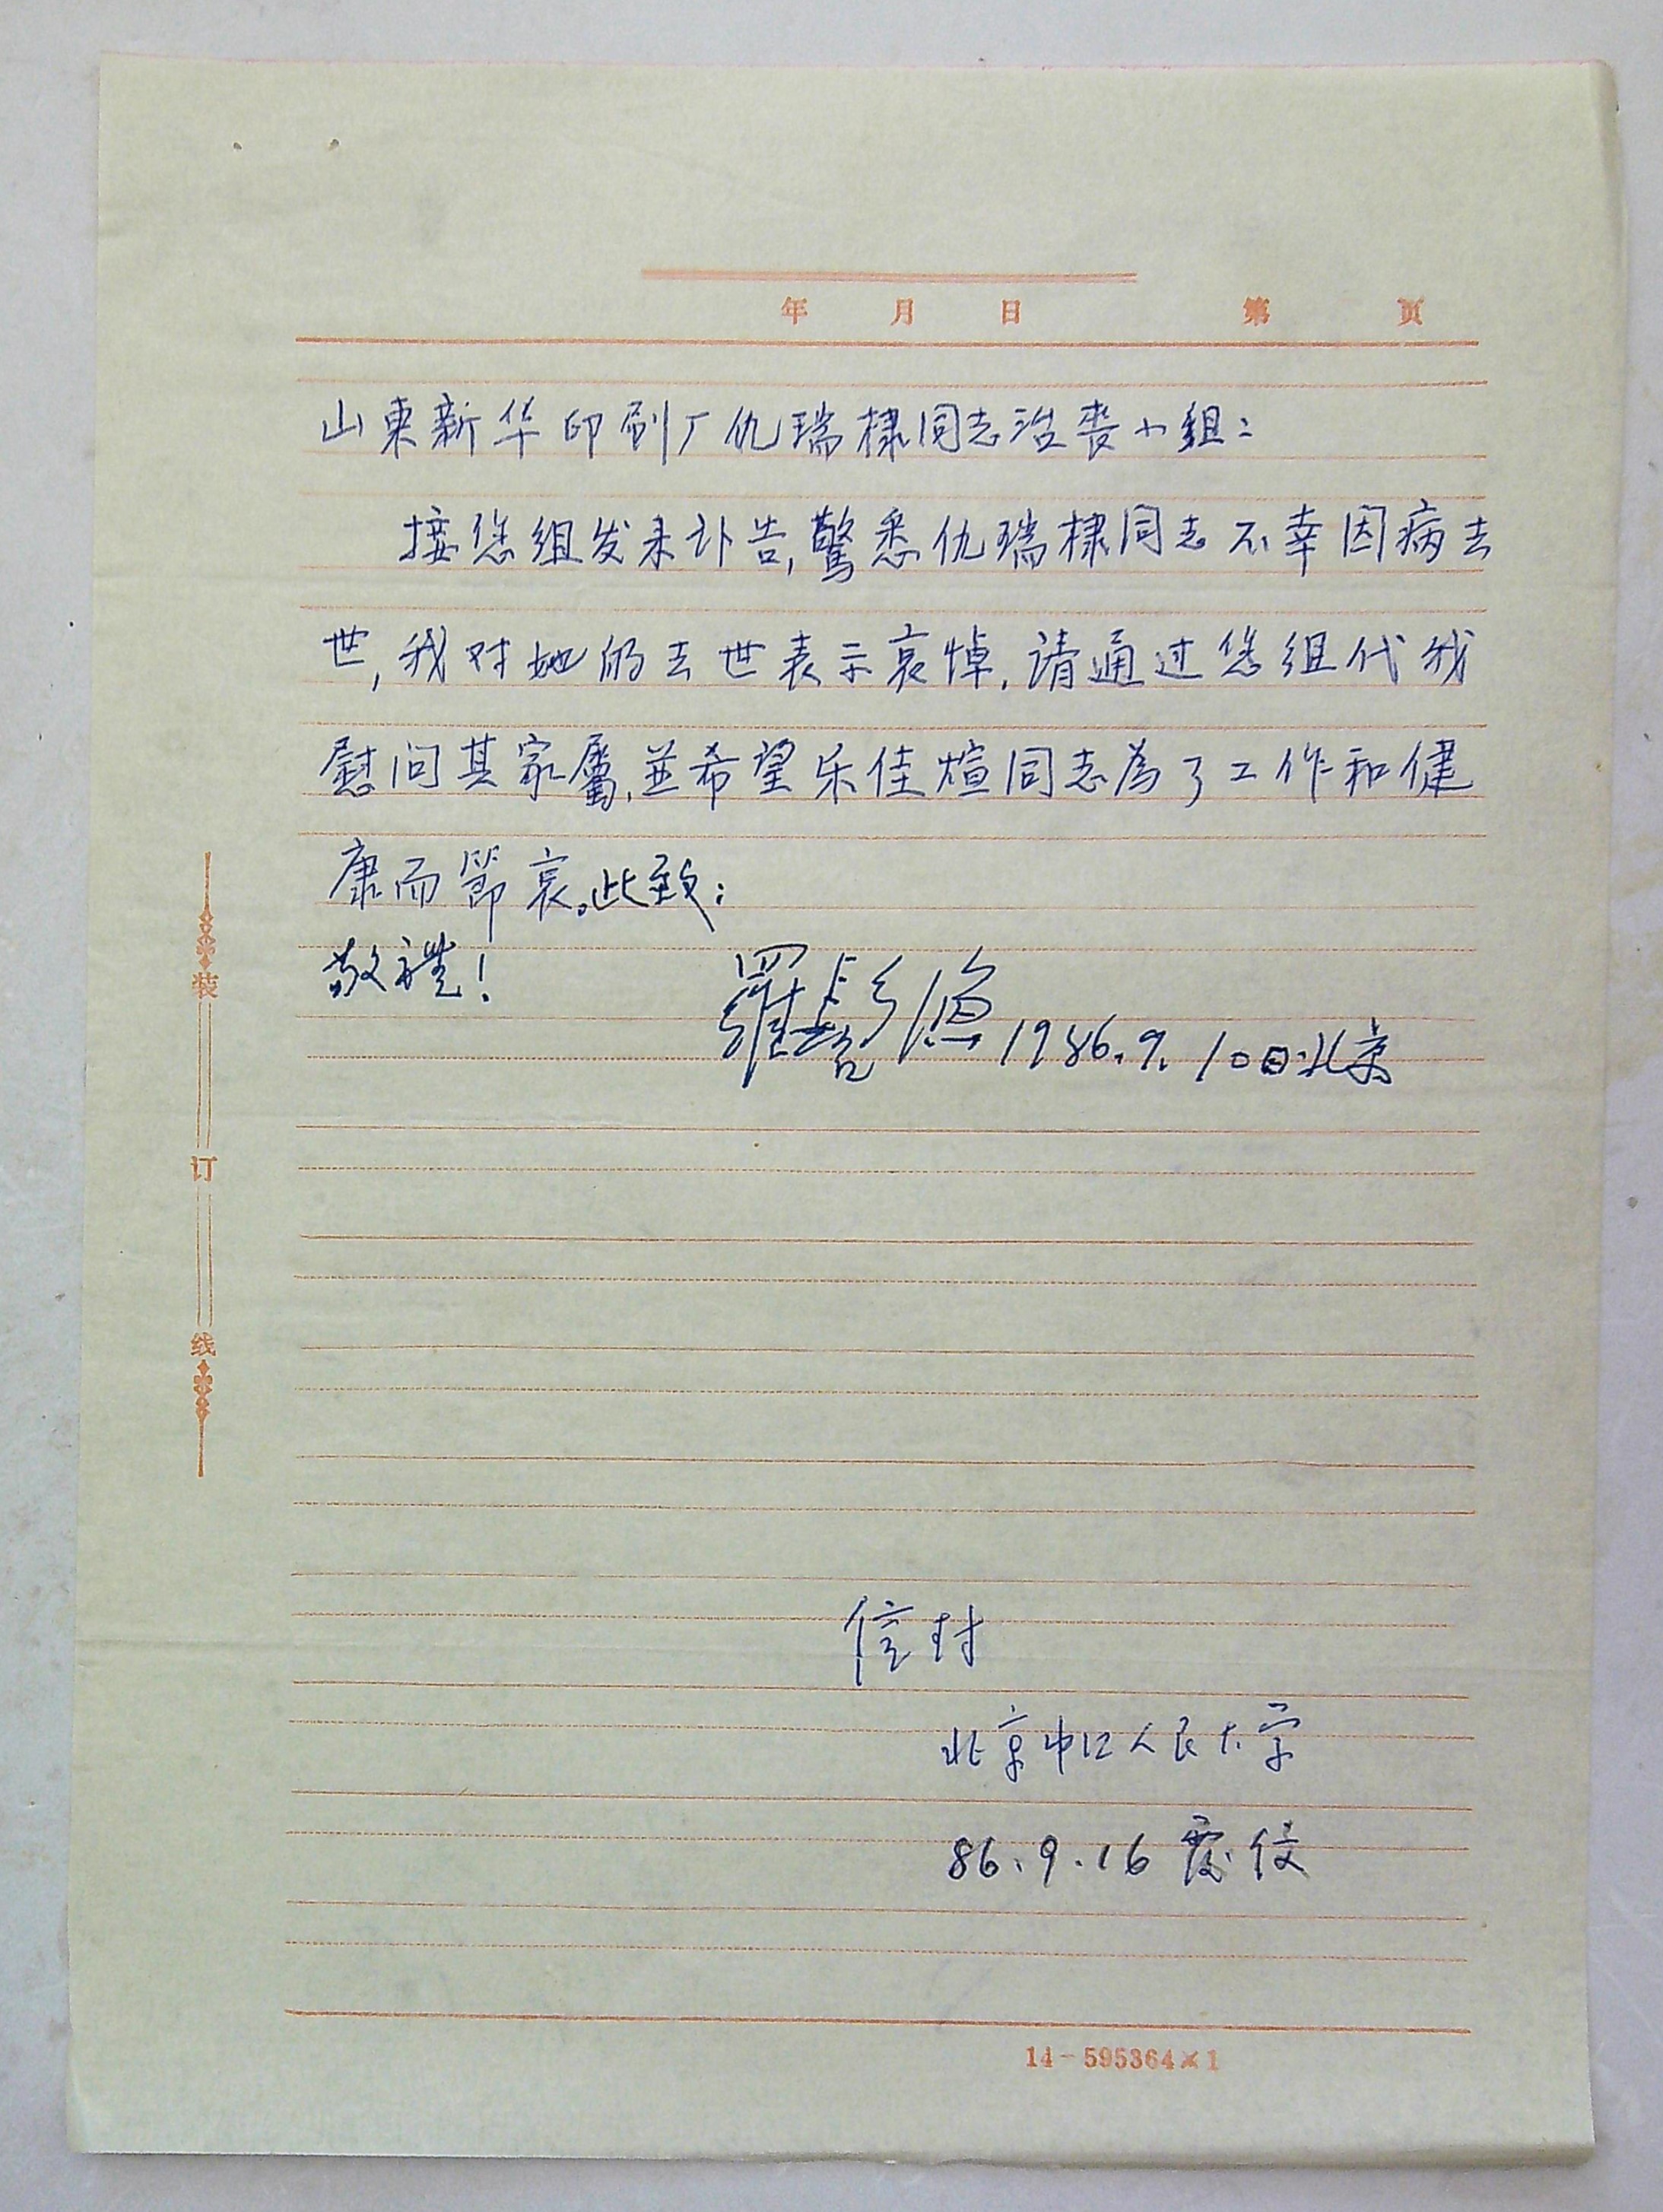 年 月 日 第 页
山東新华印刷厂仇瑞棣同志治丧小組：
接您组发来讣告，驚悉仇瑞棣同志不幸因病去
世，我对她的去世表示哀悼．请通过您组代我
慰问其家屬，並希望乐佳煊同志為了工作和健
康而節哀。此致：
敬禮！
羅髫漁 1986.9.10日北京
信封
北京中口人民大学
86.9.16 發信
装订线
14-595364×1